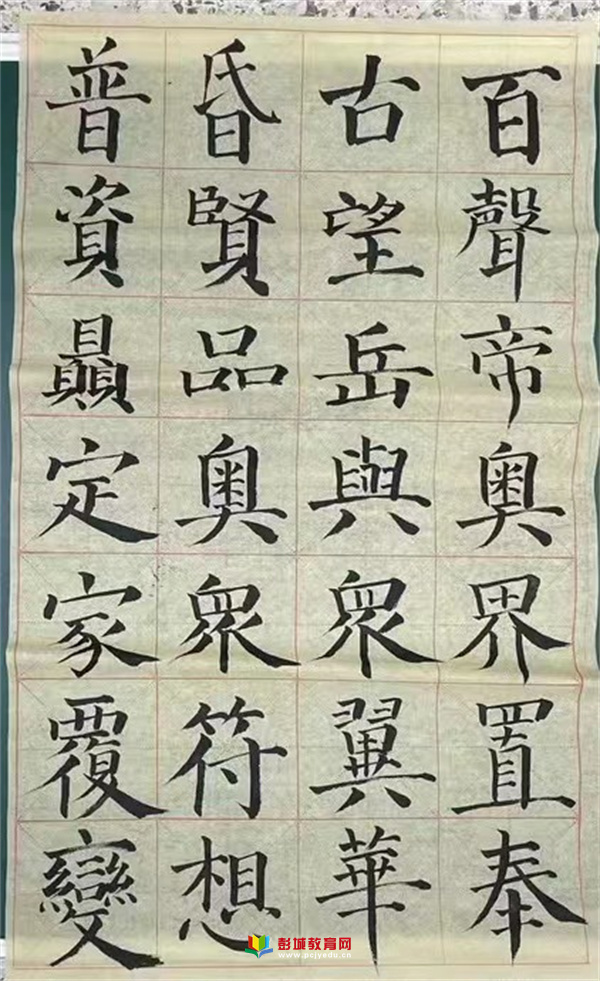 百聲帝奥界置奉
古望岳與衆翼華
昏賢品奥衆符想
普資贔定家覆變
彭城教育网
www.pcjyedu.cn